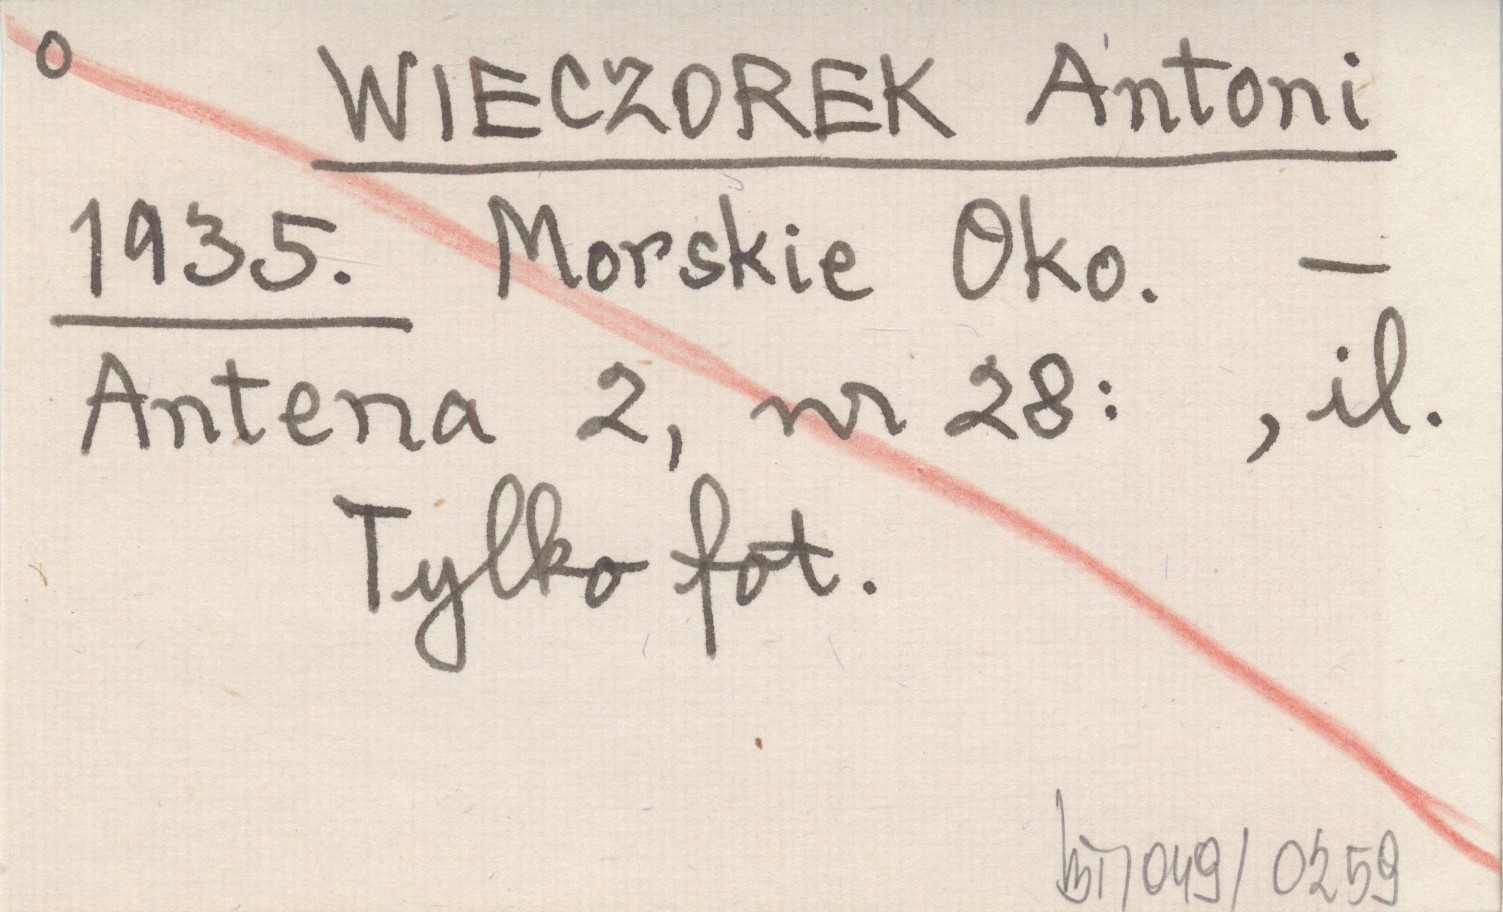 o WIECZOREK Antoni
1935. Morskie Oko. —
Antena 2, nr 28: , il.
Tylko fot.
049/0259